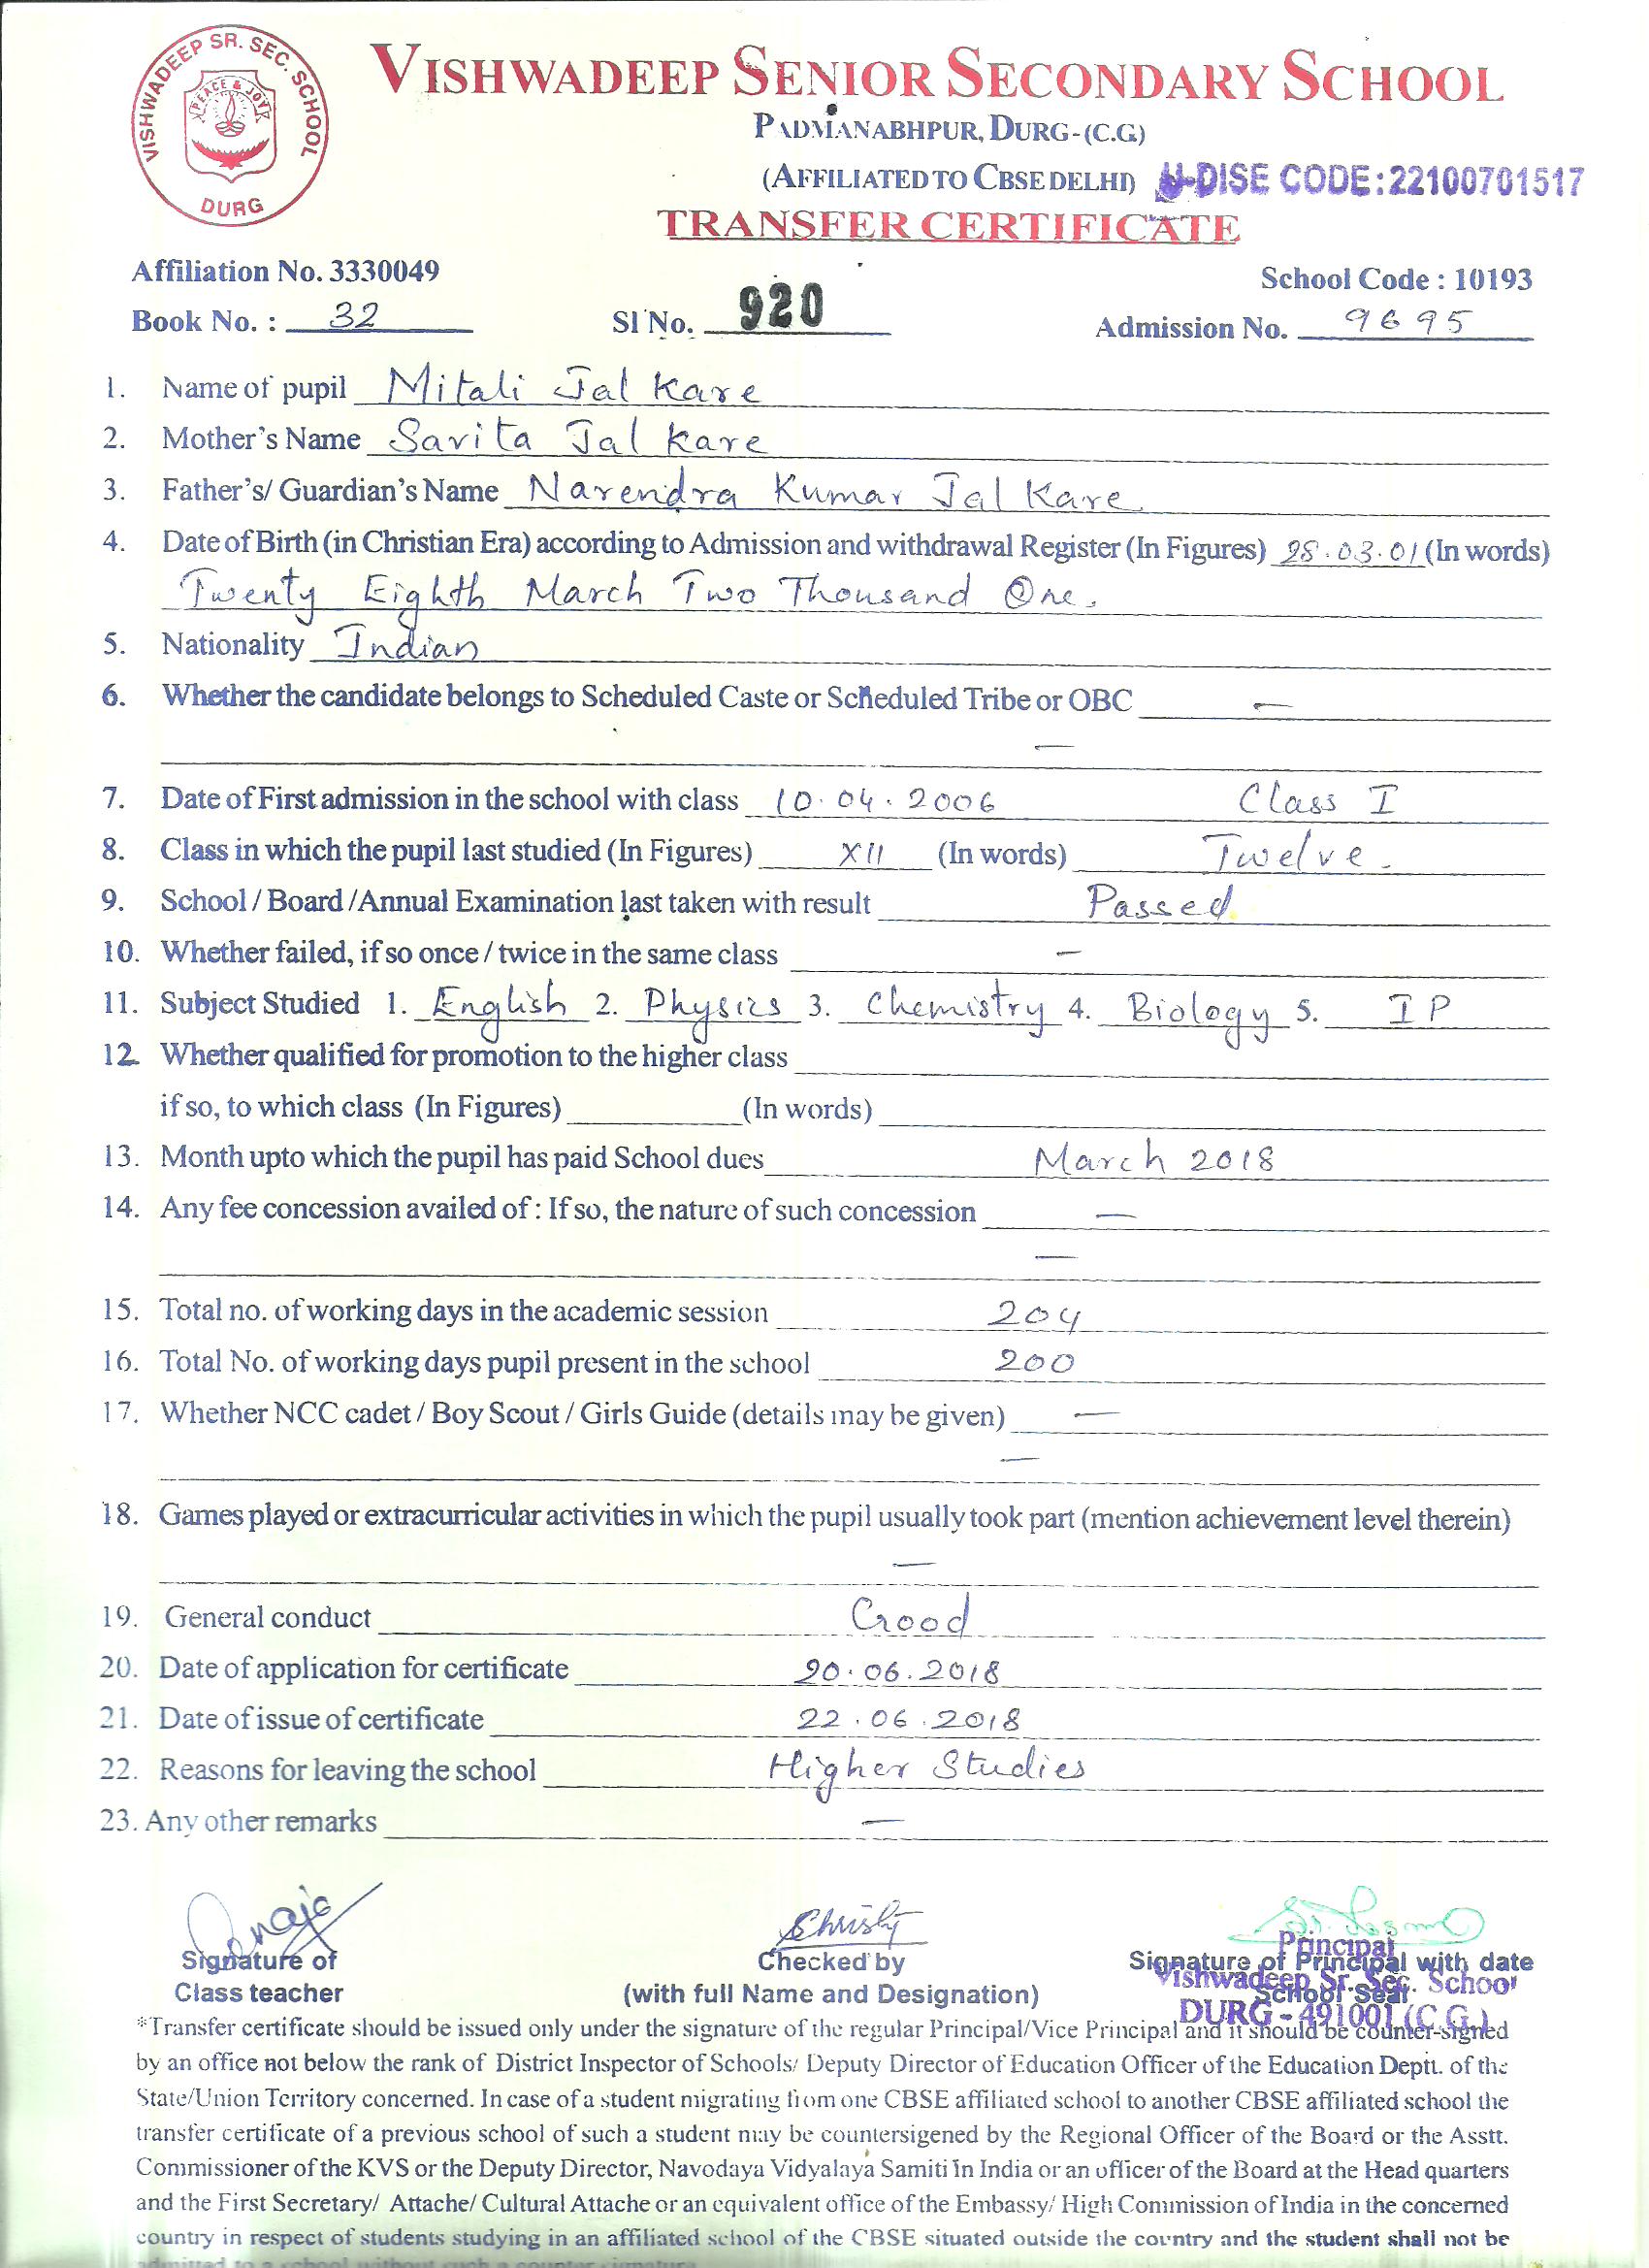 VISHWADEEP SR. SEC. SCHOOL
PEACE & JOY
DURG
VISHWADEEP SENIOR SECONDARY SCHOOL
PADMANABHPUR, DURG-(C.G.)
(AFFILIATED TO CBSE DELHI) U-DISE CODE:22100701517
TRANSFER CERTIFICATE
Affiliation No. 3330049 School Code : 10193
Book No. : 32 Sl No. 920 Admission No. 9695
1. Name of pupil Mitali Jal Kare
2. Mother's Name Savita Jal Kare
3. Father's/ Guardian's Name Narendra Kumar Jal Kare
4. Date of Birth (in Christian Era) according to Admission and withdrawal Register (In Figures) 28.03.01 (In words)
Twenty Eighth March Two Thousand One.
5. Nationality Indian
6. Whether the candidate belongs to Scheduled Caste or Scheduled Tribe or OBC —
—
7. Date of First admission in the school with class 10.04.2006 Class I
8. Class in which the pupil last studied (In Figures) XII (In words) Twelve.
9. School / Board /Annual Examination last taken with result Passed
10. Whether failed, if so once / twice in the same class —
11. Subject Studied 1. English 2. Physics 3. Chemistry 4. Biology 5. IP
12. Whether qualified for promotion to the higher class
if so, to which class (In Figures) (In words)
13. Month upto which the pupil has paid School dues March 2018
14. Any fee concession availed of : If so, the nature of such concession —
—
15. Total no. of working days in the academic session 204
16. Total No. of working days pupil present in the school 200
17. Whether NCC cadet / Boy Scout / Girls Guide (details may be given) —
—
18. Games played or extracurricular activities in which the pupil usually took part (mention achievement level therein)
—
19. General conduct Good
20. Date of application for certificate 20.06.2018
21. Date of issue of certificate 22.06.2018
22. Reasons for leaving the school Higher Studies
23. Any other remarks —
Christy
Principal
Signature of Checked by Signature of Principal with date
Vishwadeep Sr. Sec. School
Class teacher (with full Name and Designation) School Seal
DURG - 491001 (C.G.)
*Transfer certificate should be issued only under the signature of the regular Principal/Vice Principal and it should be counter-signed
by an office not below the rank of District Inspector of Schools/ Deputy Director of Education Officer of the Education Deptt. of the
State/Union Territory concerned. In case of a student migrating from one CBSE affiliated school to another CBSE affiliated school the
transfer certificate of a previous school of such a student may be countersigened by the Regional Officer of the Board or the Asstt.
Commissioner of the KVS or the Deputy Director, Navodaya Vidyalaya Samiti in India or an officer of the Board at the Head quarters
and the First Secretary/ Attache/ Cultural Attache or an equivalent office of the Embassy/ High Commission of India in the concerned
country in respect of students studying in an affiliated school of the CBSE situated outside the country and the student shall not be
admitted to a school without such a counter signature